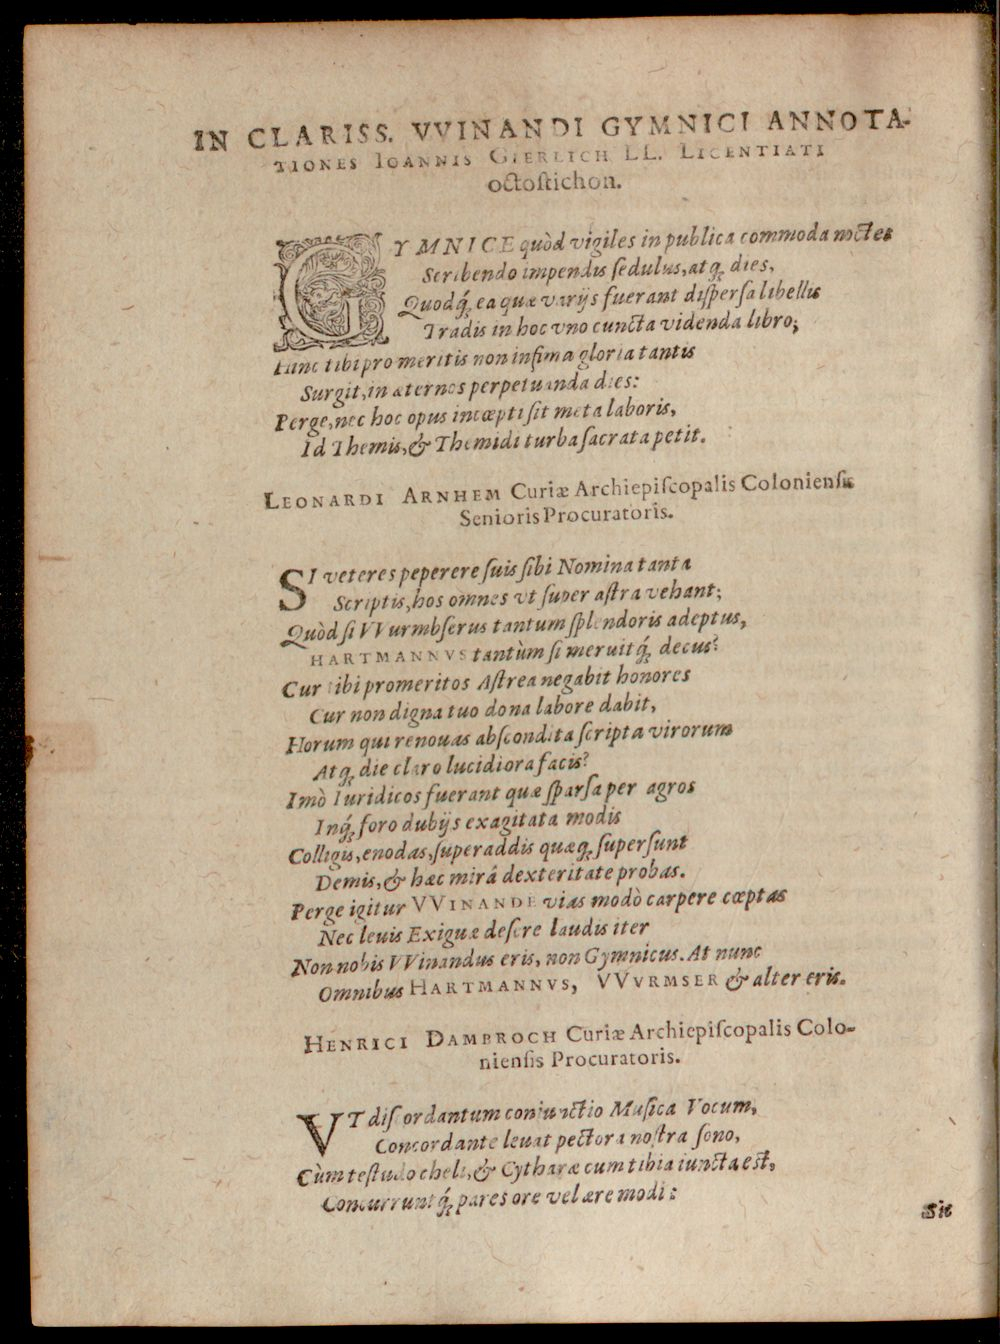 IN CLARISS. VVINANDI GYMNICI ANNOTA-
TIONES IOANNIS GIERLICH LL. LICENTIATI
octostichon.
GYMNICE quòd vigiles in publica commoda noctes
Scribendo impendis sedulus, atq; dies,
Quodq́; ea quæ varijs fuerant dispersa libellis
Tradis in hoc vno cuncta videnda libro;
Hinc tibi pro meritis non infima gloria tantis
Surgit, in æternos perpetuanda dies:
Perge, nec hoc opus incœpti sit meta laboris,
Id Themis, & Themidi turba sacrata petit.
LEONARDI ARNHEM Curiæ Archiepiscopalis Coloniensis
Senioris Procuratoris.
SI veteres peperere suis sibi Nomina tanta
Scriptis, hos omnes vt super astra vehant;
Quòd si VVurmbserus tantum splendoris adeptus,
HARTMANNVS tantùm si meruitq́; decus?
Cur tibi promeritos Astrea negabit honores
Cur non digna tuo dona labore dabit,
Horum qui renouas abscondita scripta virorum
Atq; die claro lucidiora facis?
Imò Iuridicos fuerant quæ sparsa per agros
Inq́; foro dubijs exagitata modis
Colligis, enodas, superaddis quæq; supersunt
Demis, & hæc mirá dexteritate probas.
Perge igitur VVINANDE vias modò carpere cœptas
Nec leuis Exiguæ desere laudis iter
Non nobis VVinandus eris, non Gymnicus. At nunc
Omnibus HARTMANNVS, VVVRMSER & alter eris.
HENRICI DAMBROCH Curiæ Archiepiscopalis Colo-
niensis Procuratoris.
VT discordantum coniunctio Musica Vocum,
Concordante leuat pectora nostra sono,
Cùm testudo cheli, & Cytharæ cum tibia iuncta est,
Concurruntq́; pares ore vel ære modi:
Sic